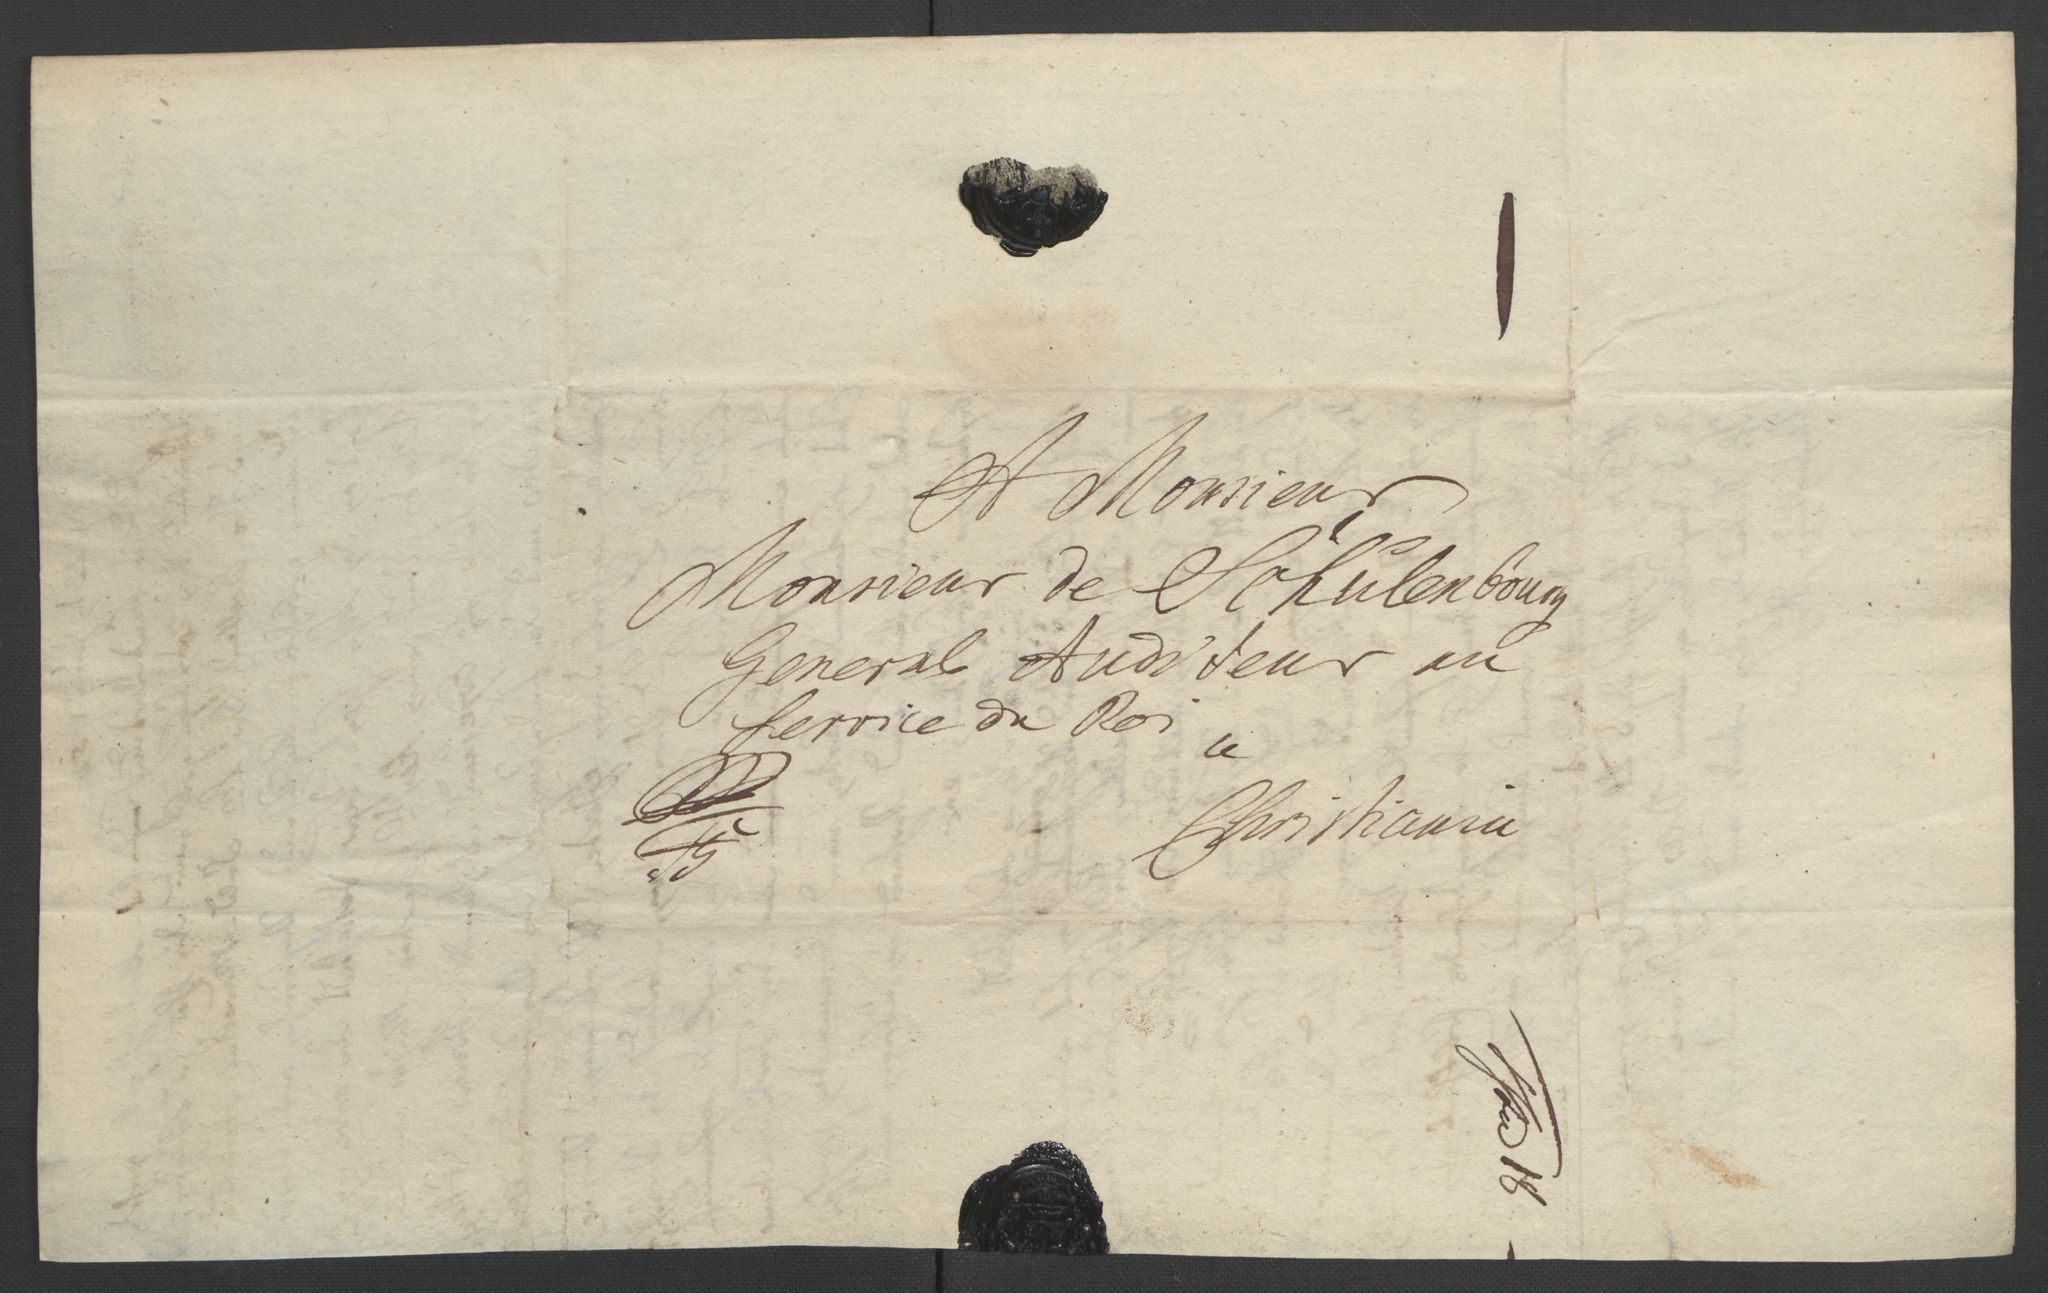 A Monsieur
Monsieur de Schulenbourg
General Auditeur au
Service du Roi
a
Christiania